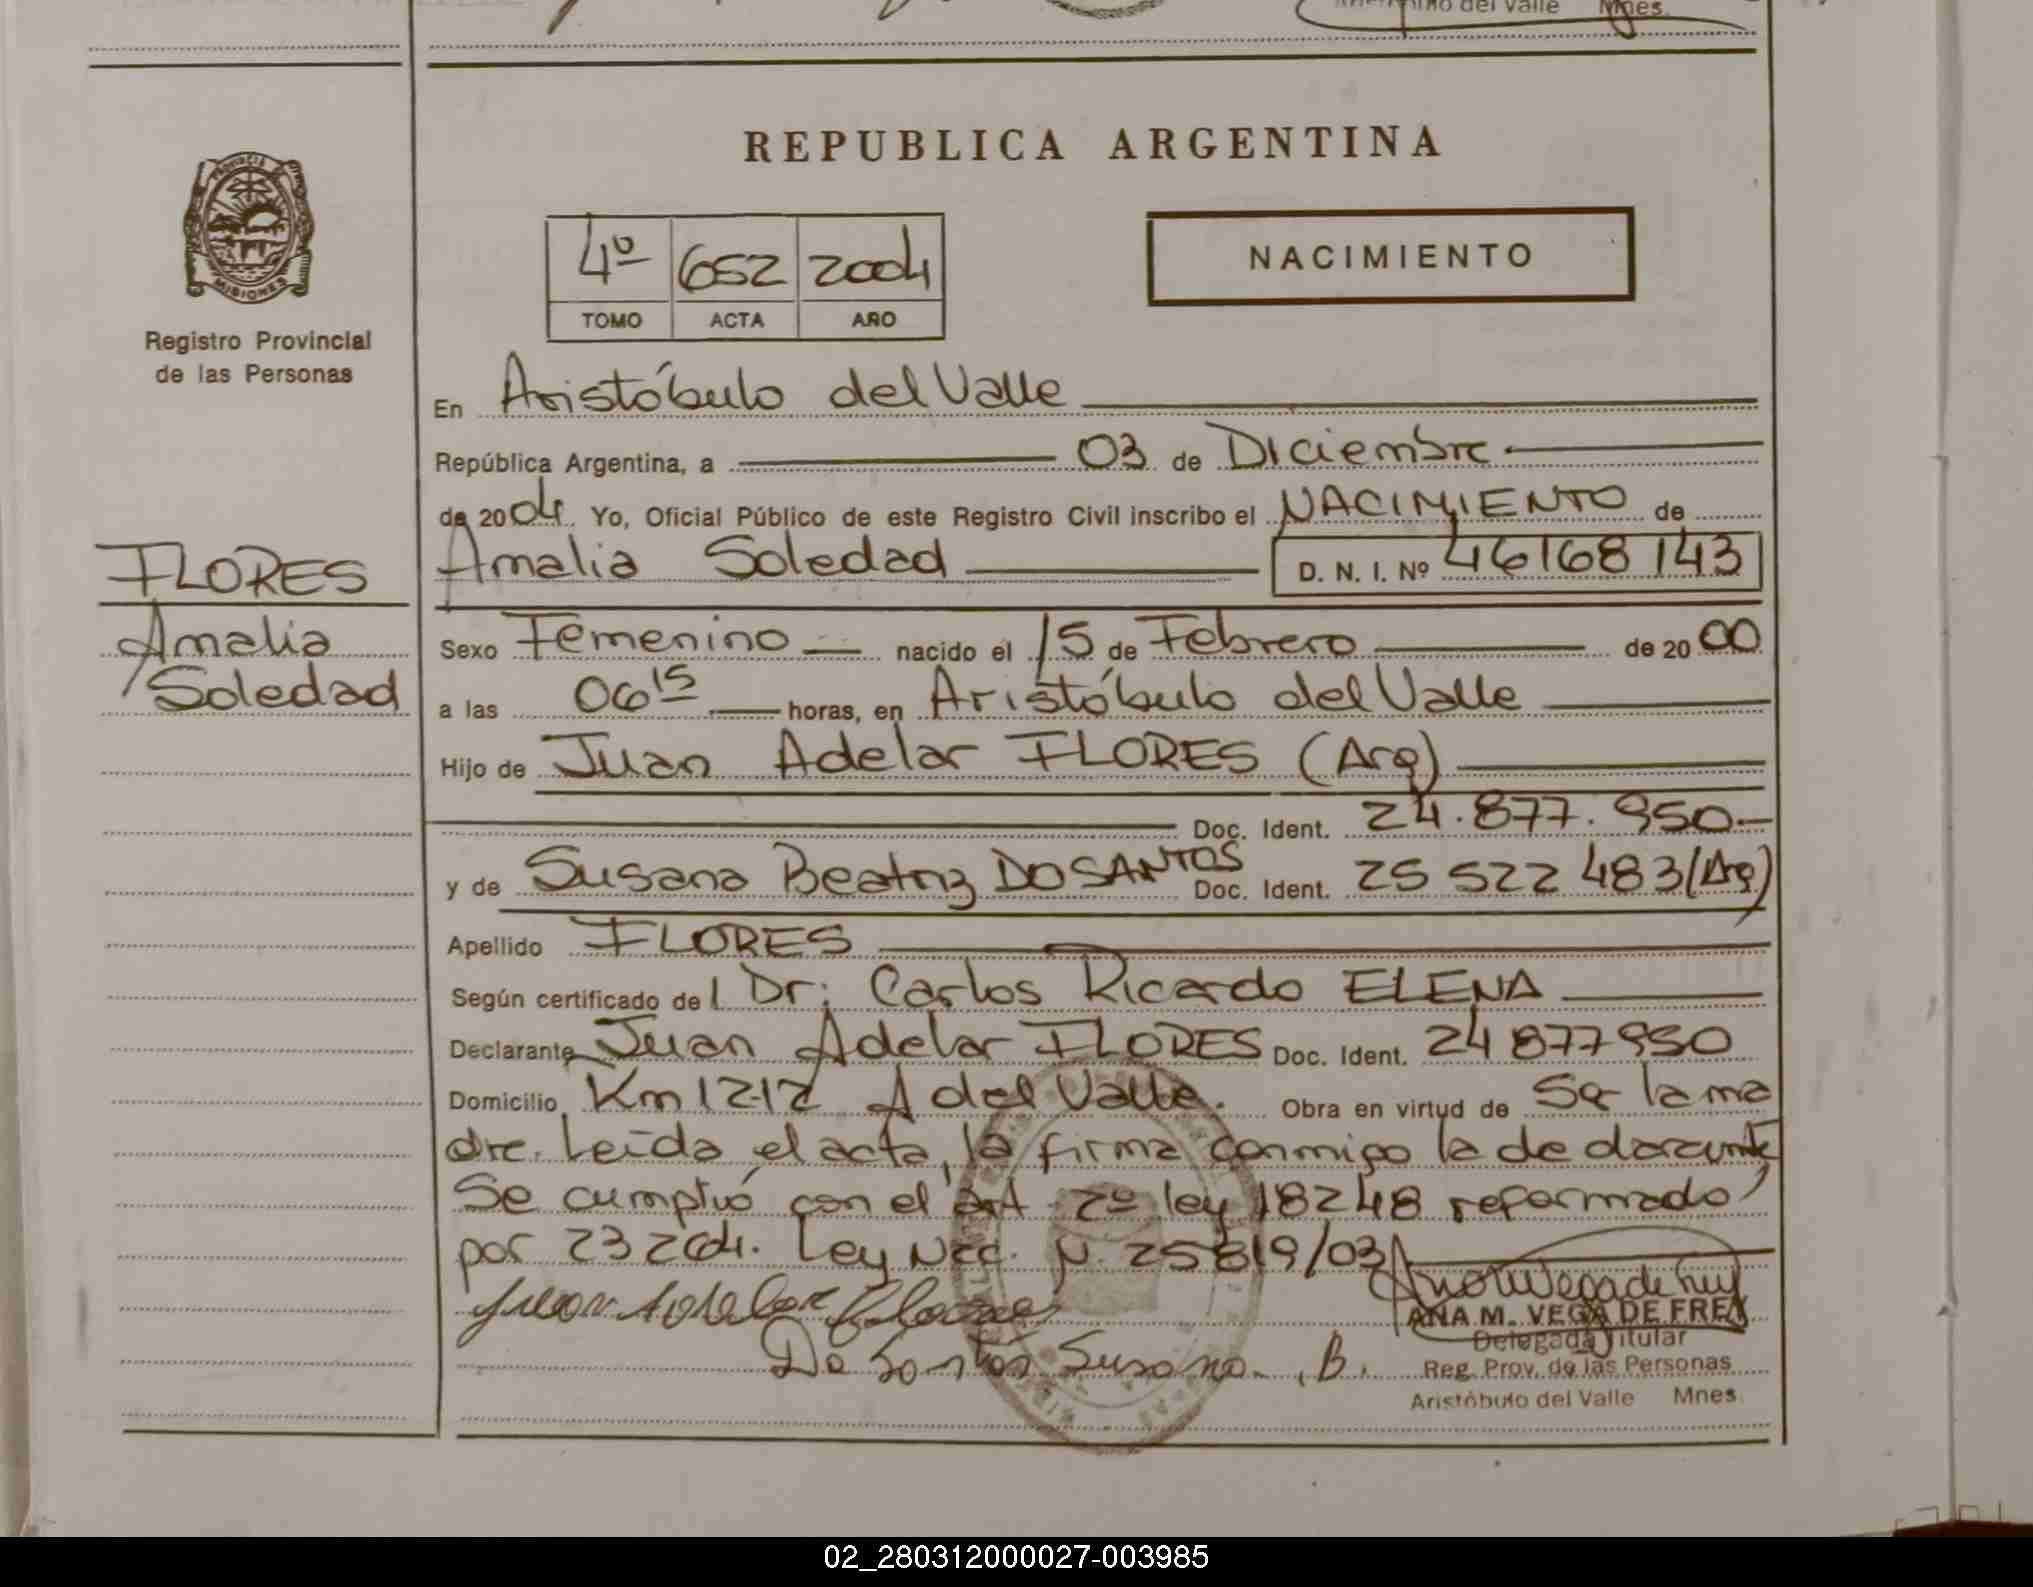 del Valle Mnes.
REPUBLICA ARGENTINA
PROVINCIA
MISIONES
Registro Provincial
de las Personas
4º 652 2004
TOMO ACTA AÑO
NACIMIENTO
En Aristóbulo del Valle
República Argentina, a 03 de Diciembre
de 2004. Yo, Oficial Público de este Registro Civil inscribo el NACIMIENTO de
Amalia Soledad D. N. I. Nº 46168143
FLORES
Amalia
Soledad
Sexo Femenino nacido el 15 de Febrero de 2000
a las 06 15 horas, en Aristóbulo del Valle
Hijo de Juan Adelar FLORES (Arg)
Doc. Ident. 24.877.950.-
y de Susana Beatriz DOSANTOS Doc. Ident. 25 522 483 (Arg)
Apellido FLORES
Según certificado del Dr: Carlos Ricardo ELENA
Declarante Juan Adelar FLORES Doc. Ident. 24 877950
Domicilio Km 1212 A del Valle. Obra en virtud de Se la ma
dre. Leída el acta, la firma conmigo la declarante
Se cumplió con el art 2º ley 18248 reformado
por 23264. Ley Nac. N. 25819/03
Juan Adelar Flores
Do Santos Susana B.
ANA M. VEGA DE FREY
Delegada Titular
Reg. Prov. de las Personas
Aristóbulo del Valle Mnes.
02_280312000027-003985